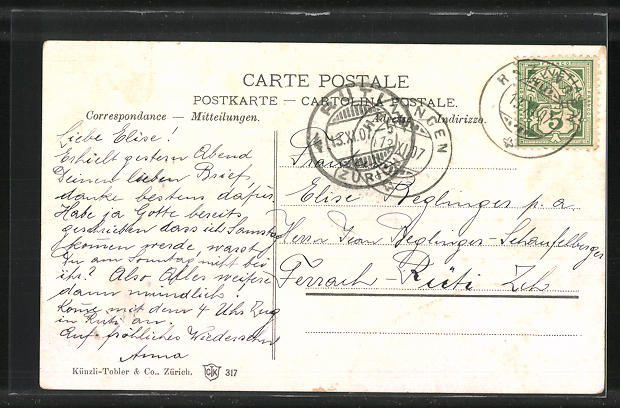 CARTE POSTALE
POSTKARTE — CARTOLINA POSTALE.
Correspondance — Mitteilungen.
Adresse — Indirizzo.
Liebe Elise!
Erhielt gestern Abend
Deinen lieben Brief,
danke bestens dafür.
Habe ja Gotte bereits
geschrieben dass ich Samstag
kommen werde, warst
Du am Sonntag nicht bei
ihr? Also Alles weitere
dann mündlich.
Komme mit dem 4 Uhr Zug
in Rüti an.
Auf fröhliches Wiedersehen
Anna
Elise Beglinger p. a.
Herrn Jean Beglinger-Schaufelberger
Ferrach-Rüti Zch
HELVETIA
5
13.XI.07
XI.07
(ZÜRICH)
Künzli-Tobler & Co., Zürich.
317